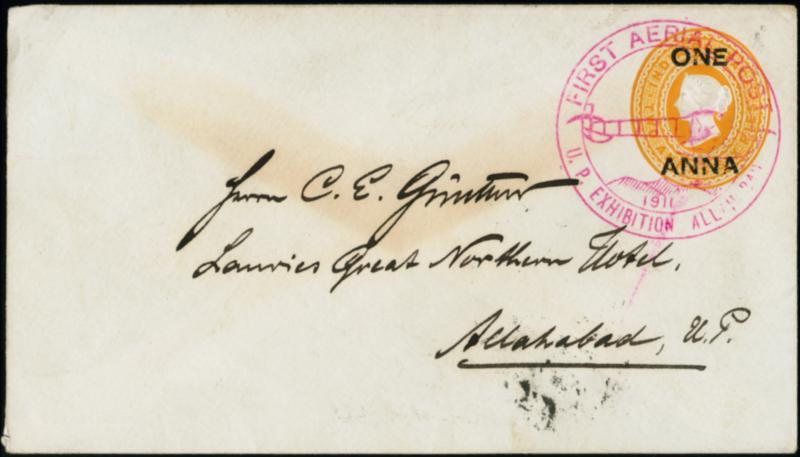 FIRST AERIAL POST
ONE
ANNA
1911
U. P. EXHIBITION ALLAHABAD
Herrn C. E. Günther
Lauries Great Northern Hotel,
Allahabad, U.P.